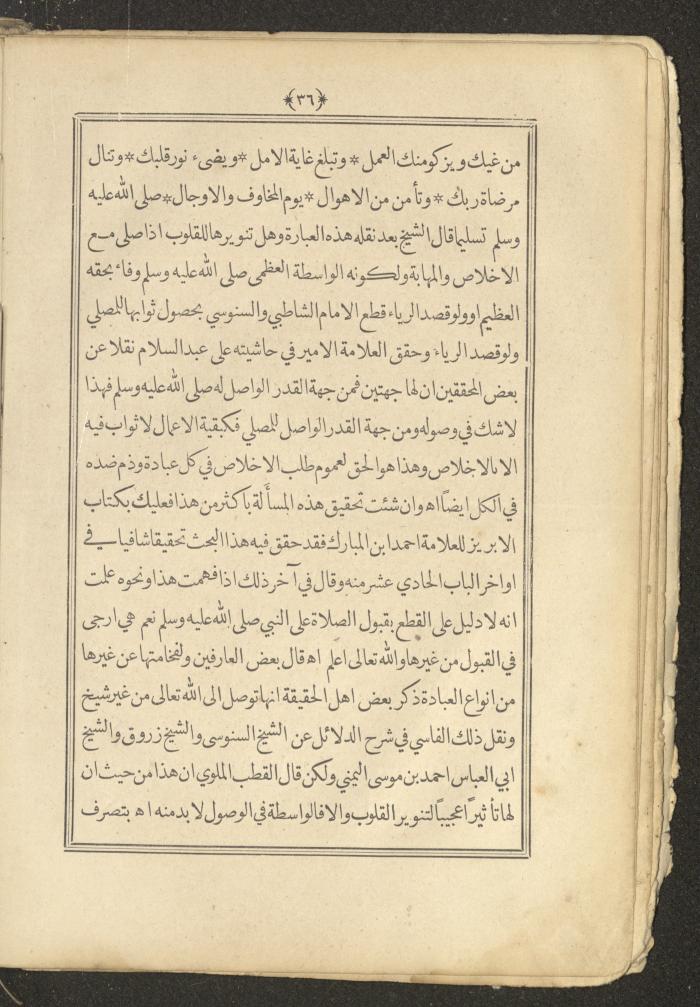 ﴿٣٦﴾
من غيك ويزكو منك العمل * وتبلغ غاية الامل * ويضىء نور قلبك * وتنال
مرضاة ربك * وتأمن من الاهوال * يوم المخاوف والاوجال * صلى الله عليه
وسلم تسليما قال الشيخ بعد نقله هذه العبارة وهل تنويرها للقلوب اذا صلى مع
الاخلاص والمهابة ولكونه الواسطة العظمى صلى الله عليه وسلم وفاء بحقه
العظيم او ولو قصد الرياء قطع الامام الشاطبي والسنوسي بحصول ثوابها للمصلي
ولو قصد الرياء وحقق العلامة الامير في حاشيته على عبد السلام نقلا عن
بعض المحققين ان لها جهتين فمن جهة القدر الواصل له صلى الله عليه وسلم فهذا
لا شك في وصوله ومن جهة القدر الواصل للمصلي فكبقية الاعمال لا ثواب فيه
الا بالاخلاص وهذا هو الحق لعموم طلب الاخلاص في كل عبادة وذم ضده
في الكل ايضاً اه وان شئت تحقيق هذه المسألة باكثر من هذا فعليك بكتاب
الابريز للعلامة احمد ابن المبارك فقد حقق فيه هذا البحث تحقيقا شافيا في
اواخر الباب الحادي عشر منه وقال في آخر ذلك اذا فهمت هذا ونحوه علمت
انه لا دليل على القطع بقبول الصلاة على النبي صلى الله عليه وسلم نعم هي ارجى
في القبول من غيرها والله تعالى اعلم اه قال بعض العارفين ولفخامتها عن غيرها
من انواع العبادة ذكر بعض اهل الحقيقة انها توصل الى الله تعالى من غير شيخ
ونقل ذلك الفاسي في شرح الدلائل عن الشيخ السنوسى والشيخ زروق والشيخ
ابي العباس احمد بن موسى اليمني ولكن قال القطب الملوي ان هذا من حيث ان
لها تأثيراً عجيباً لتنوير القلوب والا فالواسطة في الوصول لا بد منه اه بتصرف